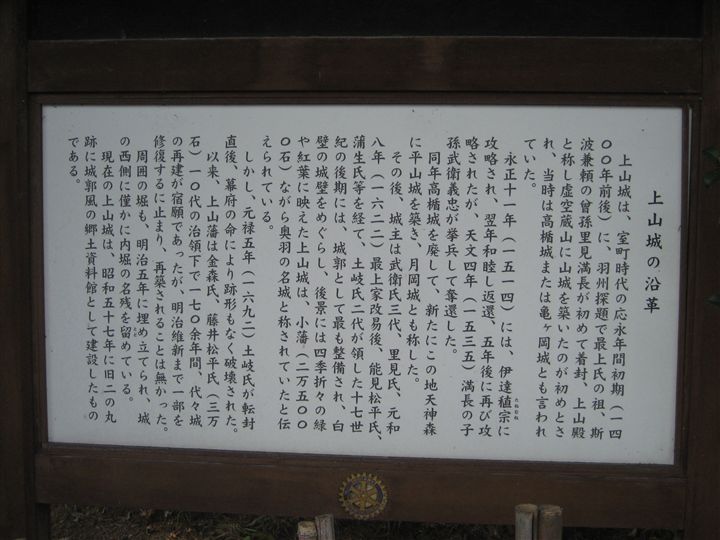 上山城の沿革
上山城は、室町時代の応永年間初期（一四
〇〇年前後）に、羽州探題で最上氏の祖、斯
波兼頼の曽孫里見満長が初めて着封、上山殿
と称し虚空蔵山に山城を築いたのが初めとさ
れ、当時は高楯城または亀ヶ岡城とも言われ
ていた。
永正十一年（一五一四）には、伊達稙宗に
たねむね
攻略され、翌年和睦し返還、五年後に再び攻
略されたが、天文四年（一五三五）満長の子
孫武衛義忠が挙兵して奪還した。
同年高楯城を廃して、新たにこの地天神森
に平山城を築き、月岡城とも称した。
その後、城主は武衛氏三代、里見氏、元和
八年（一六二二）最上家改易後、能見松平氏、
蒲生氏等を経て、土岐氏二代が領した十七世
紀の後期には、城郭として最も整備され、白
壁の城壁をめぐらし、後景には四季折々の緑
や紅葉に映えた上山城は、小藩（二万五〇〇
〇石）ながら奥羽の名城と称されていたと伝
えられている。
しかし、元禄五年（一六九二）土岐氏が転封
直後、幕府の命により跡形もなく破壊された。
以来、上山藩は金森氏、藤井松平氏（三万
石）一〇代の治領下で一七〇余年間、代々城
の再建が宿願であったが、明治維新まで一部を
修復するに止まり、再築されることは無かった。
周囲の堀も、明治五年に埋め立てられ、城
の西側に僅かに内堀の名残を留めている。
現在の上山城は、昭和五十七年に旧二の丸
跡に城郭風の郷土資料館として建設したもの
である。